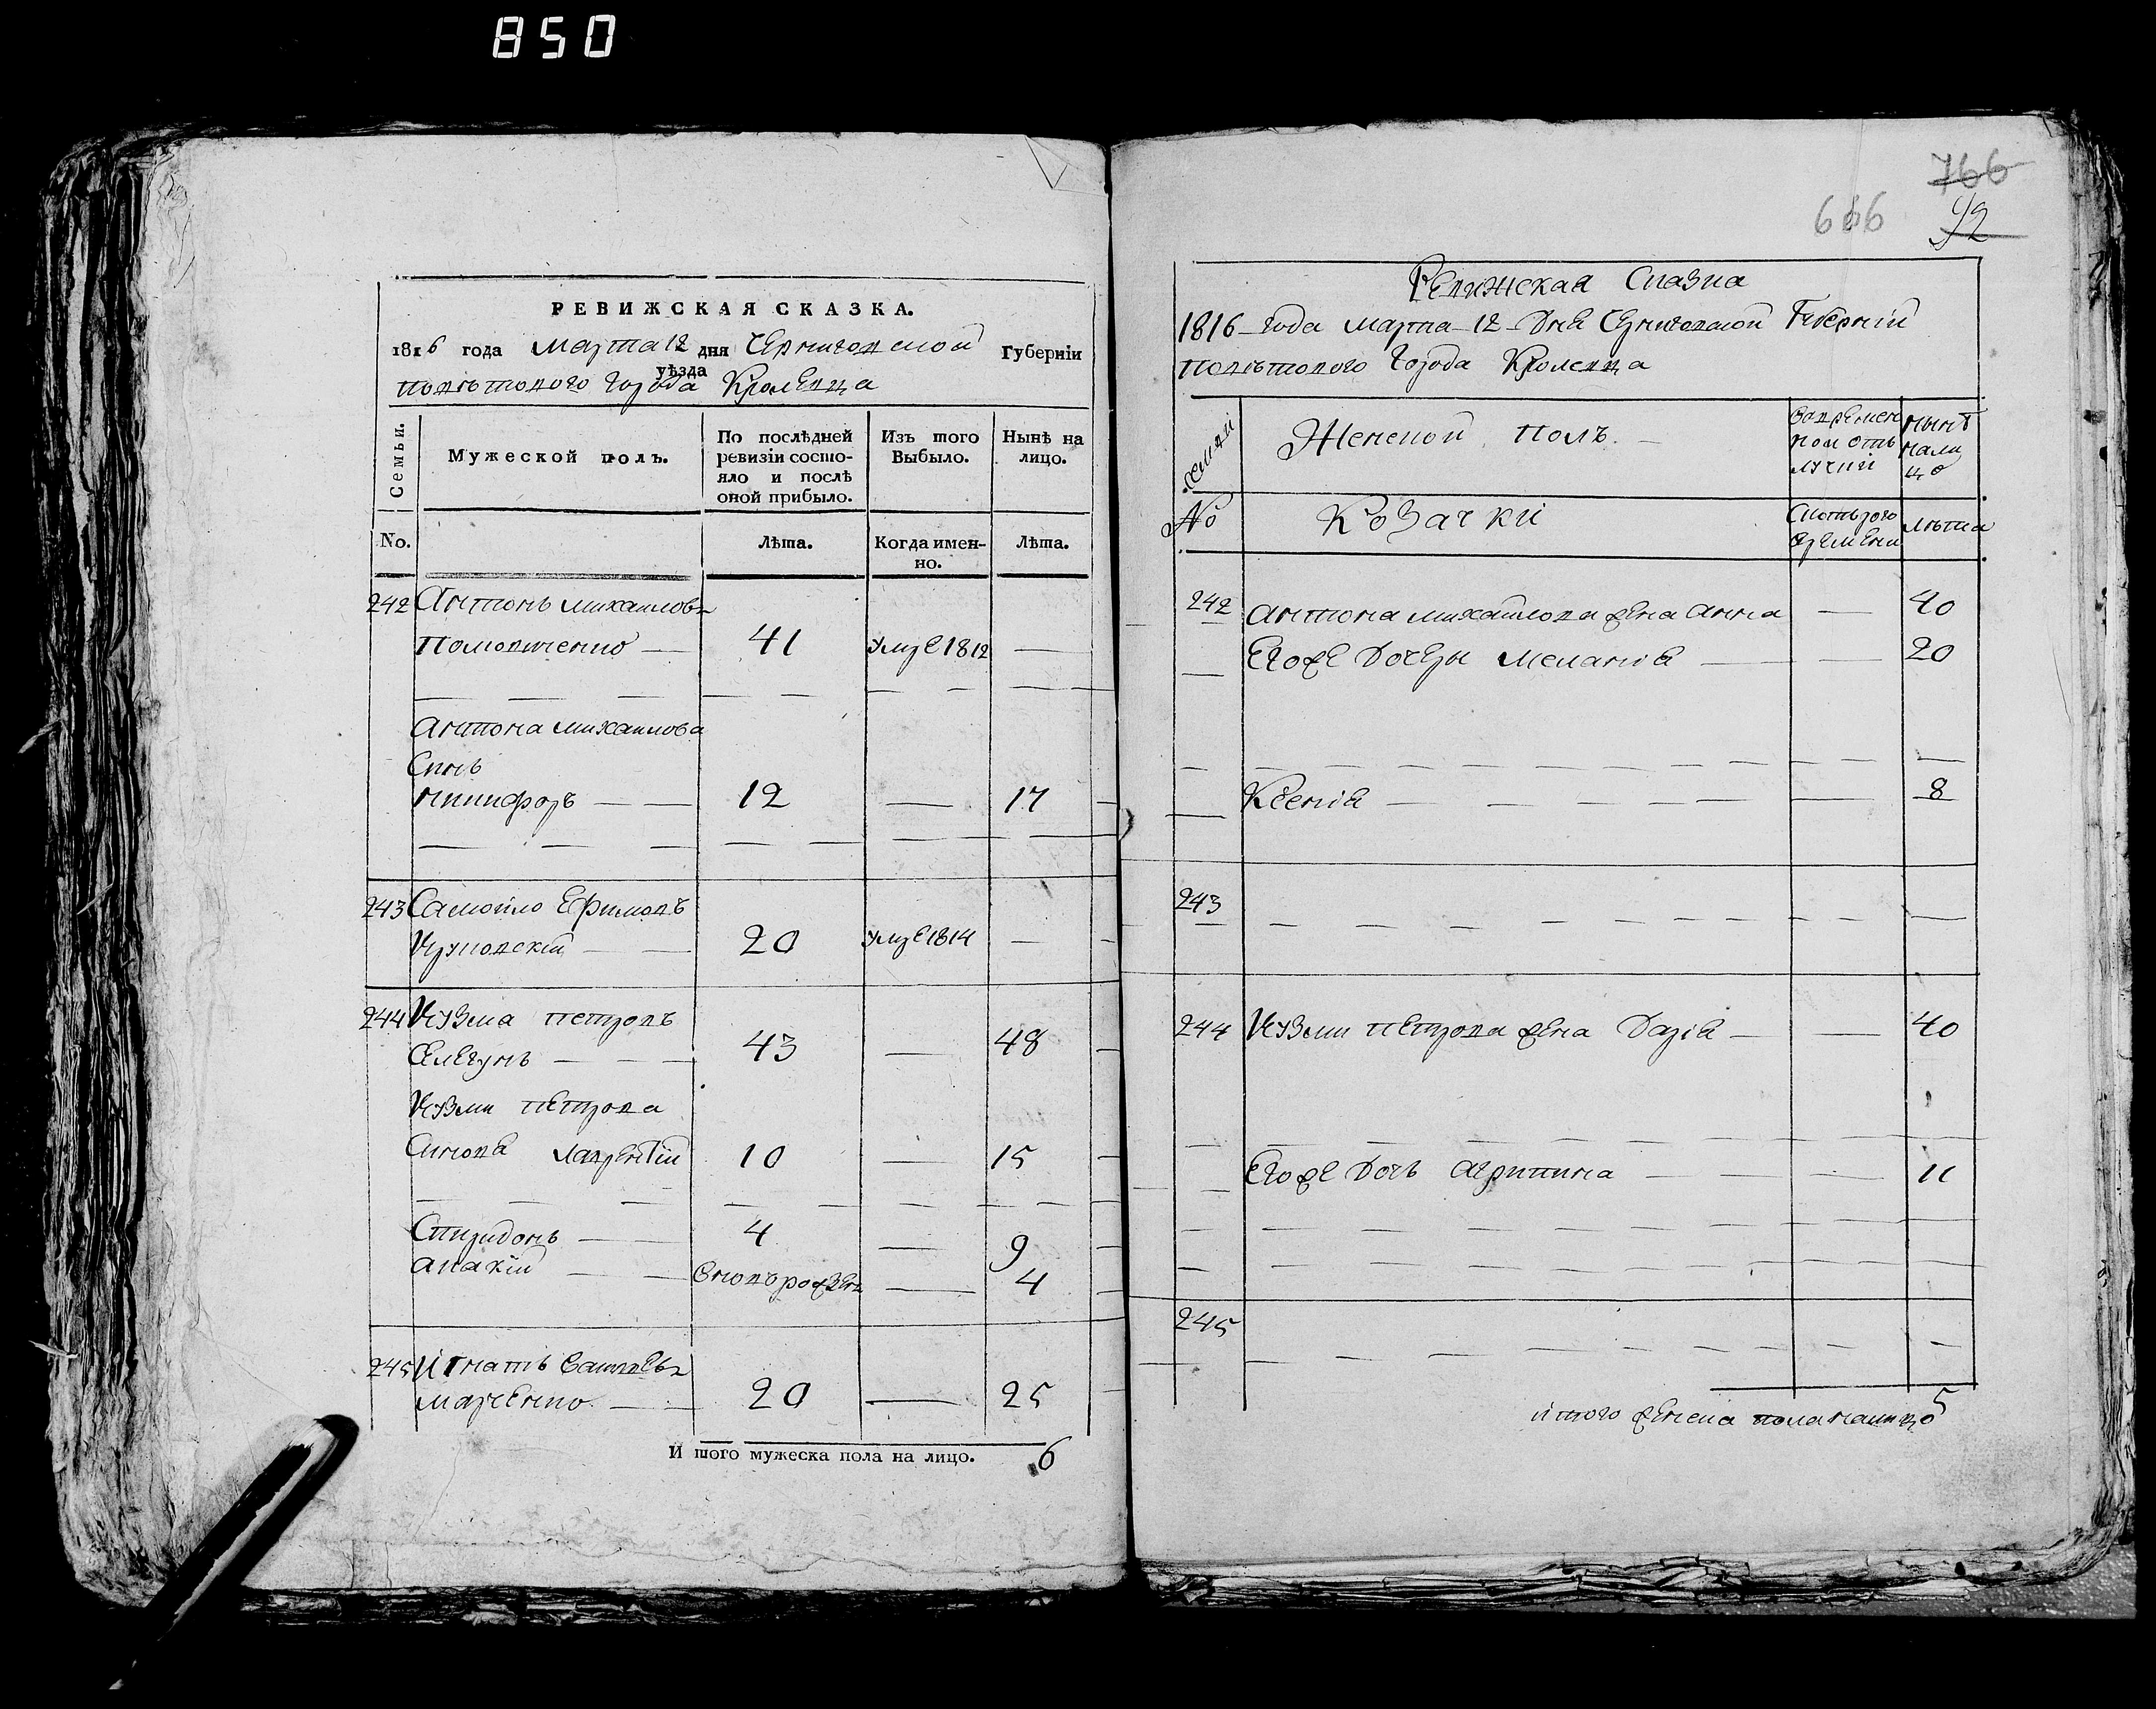 850
РЕВИЖСКАЯ СКАЗКА.
1816 года Марта 12 дня Черниговской Губерніи
уѣзда
повѣтового города Кролевца
Семьи.
Мужеской полъ.
По послѣдней ревизіи состо-
яло и послѣ
оной прибыло.
Изъ того
Выбыло.
Нынѣ на
лицо.
No.
Лѣта.
Когда имен-
но.
Лѣта.
242 Антонъ Михаиловъ
41 Умре 1812 —
Антона Михаилова
Синъ
Никифоръ — — 12 — 17
243 Самойло Ефимовъ
Круковский — 20 Умре 1814 —
244 Кузма Петровъ
43 — 48
Кузми Петрова
Синова Лаврентій 10 — 15
Спиридонъ — 4 — 9
Акакій — вновърожден — 4
245 Игнатъ
Марченко — 20 — 25
И того мужеска пола на лицо. 6
766
666 92
Ревижская Сказка
1816 года Марта 12 дня Черниговской Губерній
повѣтового города Кролевца
Семьи
Женской полъ —
Во времен
ной отъ
лучкѣ
нынѣ
нали
цо
No
Козачки
Скотърого
времени
лѣта
242 Антона Михайлова жена Анна — 40
Егоже дочеры Меланія — 20
Ксенія — 8
243
244 Кузми Петрова жена Дарія — 40
Егоже дочь Агрипина — 11
245
итого женска пола налицо 5